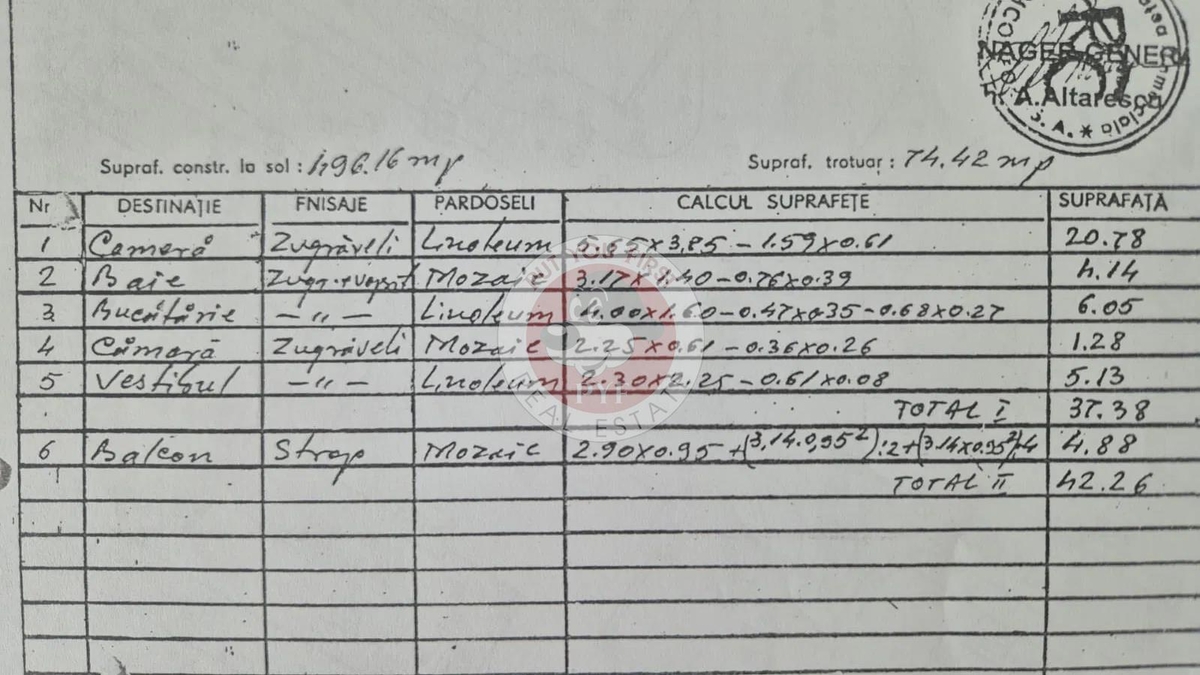 NAGER GENER
A.Altarescu
S. A. *
Supraf. constr. la sol : 496.16 mp Supraf. trotuar : 74.42 mp
Nr DESTINAȚIE FNISAJE PARDOSELI CALCUL SUPRAFEȚE SUPRAFAȚĂ
1 Cameră Zugrăveli Linoleum 5.65x3,85 - 1.59x0.61 20.78
2 Baie Zugr.+vopsit Mozaic 3.17x1.40-0.76x0.39 4.14
3 Bucătărie -"- Linoleum 4.00x1.60-0.47x0.35-0.68x0.27 6.05
4 Cămară Zugrăveli Mozaic 2.25x0.61 - 0.36x0.26 1.28
5 Vestibul -"- Linoleum 2.30x2.25-0.61x0.08 5.13
TOTAL I 37.38
6 Balcon Strop Mozaic 2.90x0.95+(3,14.0,95²):2+(3.14x0.95²):4 4.88
TOTAL II 42.26
PUT YOUR FIRST
PYF
REAL ESTATE